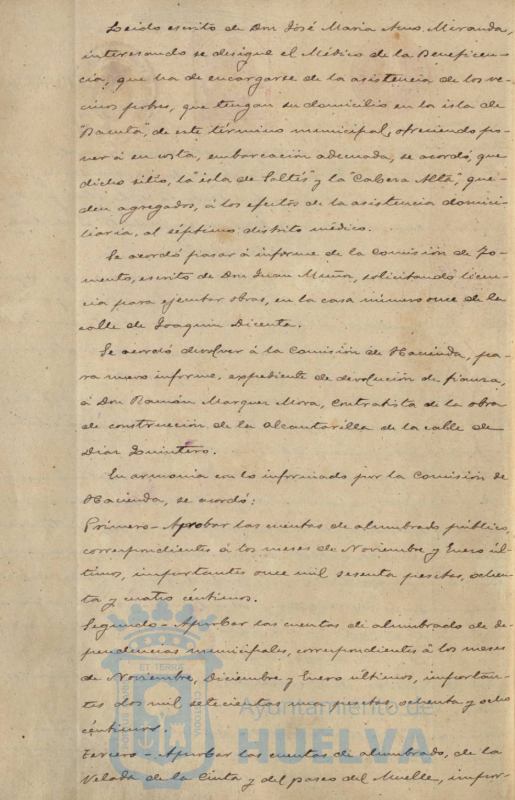 Leido escrito de Don José Maria Amo Miranda,
interesando se designe el Médico de la Beneficen-
cia, que ha de encargarse de la asistencia de los ve-
cinos pobres, que tengan su domicilio en la isla de
"Bacuta", de este término municipal, ofreciendo po-
ner á su costa, embarcación adecuada, se acordó, que
dicho sitio, la "isla de Saltés" y la "Cabeza Alta", que-
den agregados, á los efectos de la asistencia domici-
liaria, al séptimo distrito médico.
Se acordó pasar á informe de la Comisión de Fo-
mento, escrito de Don Juan Muñoz, solicitando licen-
cia para ejecutar obras, en la casa número once de la
calle de Joaquin Dicenta.
Se acordó devolver á la Comisión de Hacienda, pa-
ra nuevo informe, expediente de devolución de fianza,
á Don Ramón Marquez Mora, contratista de la obra
de construcción de la alcantarilla de la calle de
Diaz Quintero.
En armonia con lo informado por la Comisión de
Hacienda, se acordó:
Primero - Aprobar las cuentas de alumbrado público,
correspondientes á los meses de Noviembre y Enero úl-
timos, importantes once mil sesenta pesetas, ochen-
ta y cuatro centimos.
Segundo - Aprobar las cuentas de alumbrado de de-
pendencias municipales, correspondientes á los meses
de Noviembre, Diciembre y Enero últimos, importan-
tes dos mil setecientas una pesetas, ochenta y ocho
céntimos.
Tercero - Aprobar las cuentas de alumbrado, de la
Velada de la Cinta y del paseo del Muelle, impor-
Ayuntamiento de
HUELVA